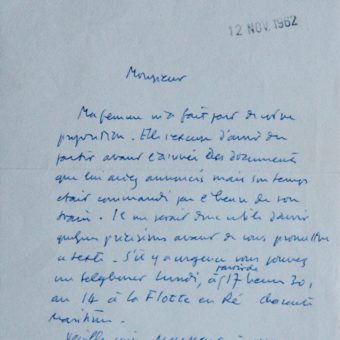 12 NOV. 1962
Monsieur
Ma femme m'a fait part de votre
proposition. Elle s'excuse d'avoir du
partir avant l'arrivée des documents
que lui aviez annoncés mais son temps
était commandé par l'heure de son
train. Il me serait donc utile d'avoir
quelques précisions avant de vous promettre
ce texte. S'il y a urgence vous pouvez
me telephoner lundi, à partir de 17 heures 30,
au 14 à la Flotte en Ré charente
maritime.